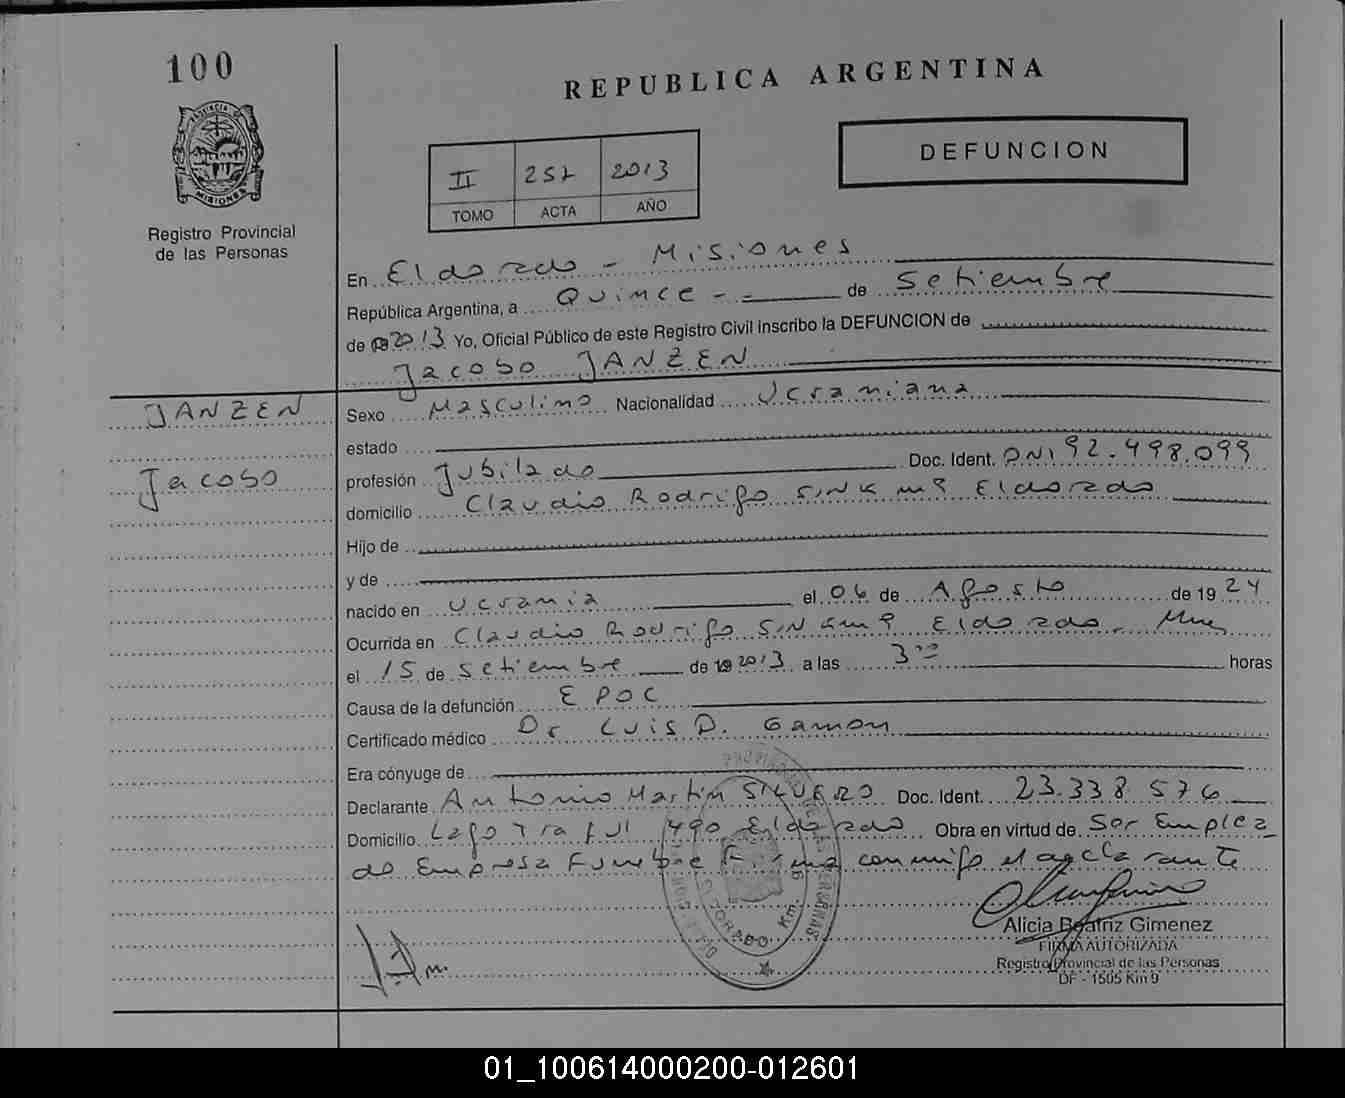 100
REPUBLICA ARGENTINA
PROVINCIA DE
MISIONES
Registro Provincial
de las Personas
DEFUNCION
II 251 2013
TOMO ACTA AÑO
En Eldorado - Misiones
República Argentina, a Quince - - de Setiembre
de 2013 Yo, Oficial Público de este Registro Civil inscribo la DEFUNCION de
Jacobo JANZEN
JANZEN
Jacobo
Sexo Masculino Nacionalidad Ucraniana
estado
profesión Jubilado Doc. Ident. DNI 92.498.099
domicilio Claudio Rodrigo S/N K m 9 Eldorado
Hijo de
y de
nacido en Ucrania el 06 de Agosto de 1924
Ocurrida en Claudio Rodrigo S/N Km 9 Eldorado - Mnes
el 15 de Setiembre de 2013 a las 3 00 horas
Causa de la defunción EPOC
Certificado médico Dr Luis D. Gamon
Era cónyuge de
Declarante Antonio Martin SILVERO Doc. Ident. 23.338.576
Domicilio Lago Traful 1490 Eldorado Obra en virtud de Ser Emplea
do Empresa Funebre Firma conmigo el declarante
Alicia Beatriz Gimenez
FIRMA AUTORIZADA
Registro Provincial de las Personas
DF - 1505 Km 9
ELDORADO Km.
01_100614000200-012601